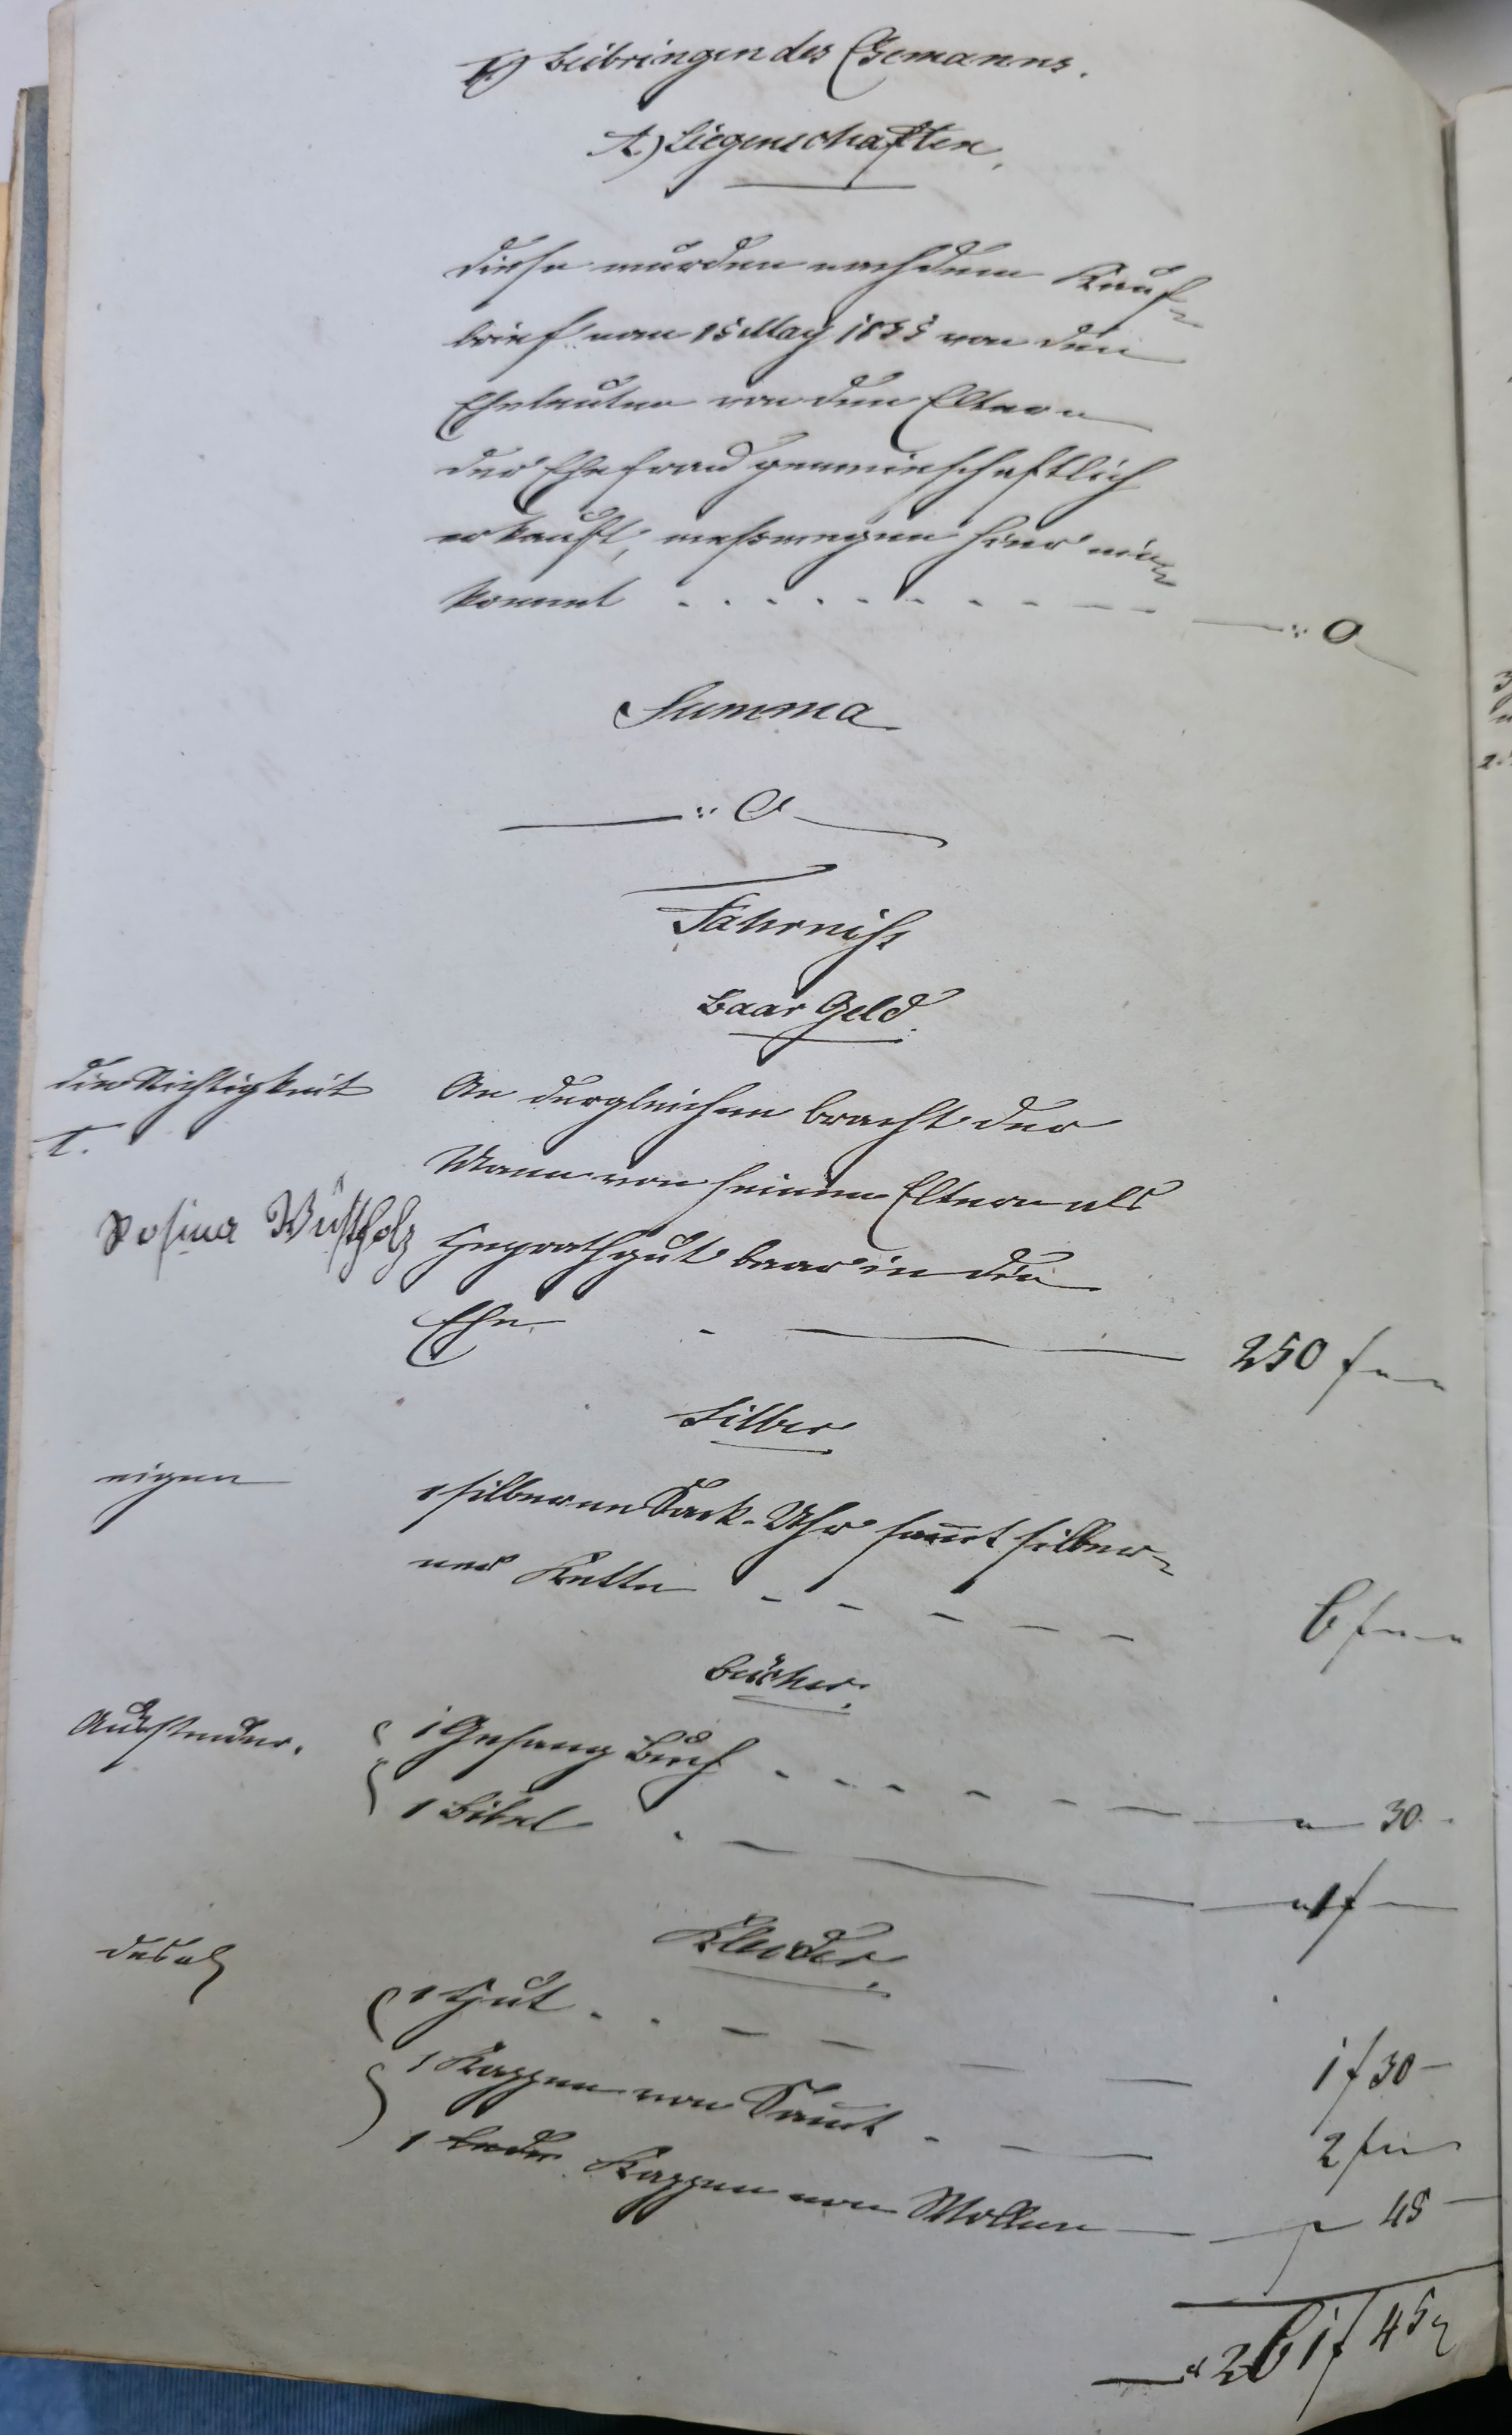 I.) Beibringen des Ehemanns.
A.) Liegenschaften.
Diese wurden nach dem Kauf-
brief vom 15 May 1855 von den
Eheleuten von den Eltern
der Ehefrau gemeinschaftlich
erkauft, weßwegen hier ein-
kommt . . . . . . . . . . — — —:. 0
Summa
—:. 0
Fahrniß
Baar Geld.
die Richtigkeit
T.
Rosina Wüstholz
An dergleichen bracht der
Mann von seinen Eltern als
Heyrathgut baar in die
Ehe. - — 250 f — —
Silber
eigen
1 silberne Sack-Uhr samt silber-
ner Kette - - - - - 6 f — —
Bücher.
1 Gesang Buch . . . - - - — 30 -
1 Bibel . — — 1 f —
Kleider.
desgl
1 Hut . . - - - — 1 f 30 —
1 Kappen von Samt . - — 2 f —
1 Kappen von Wollen — 45 —
261 f 45